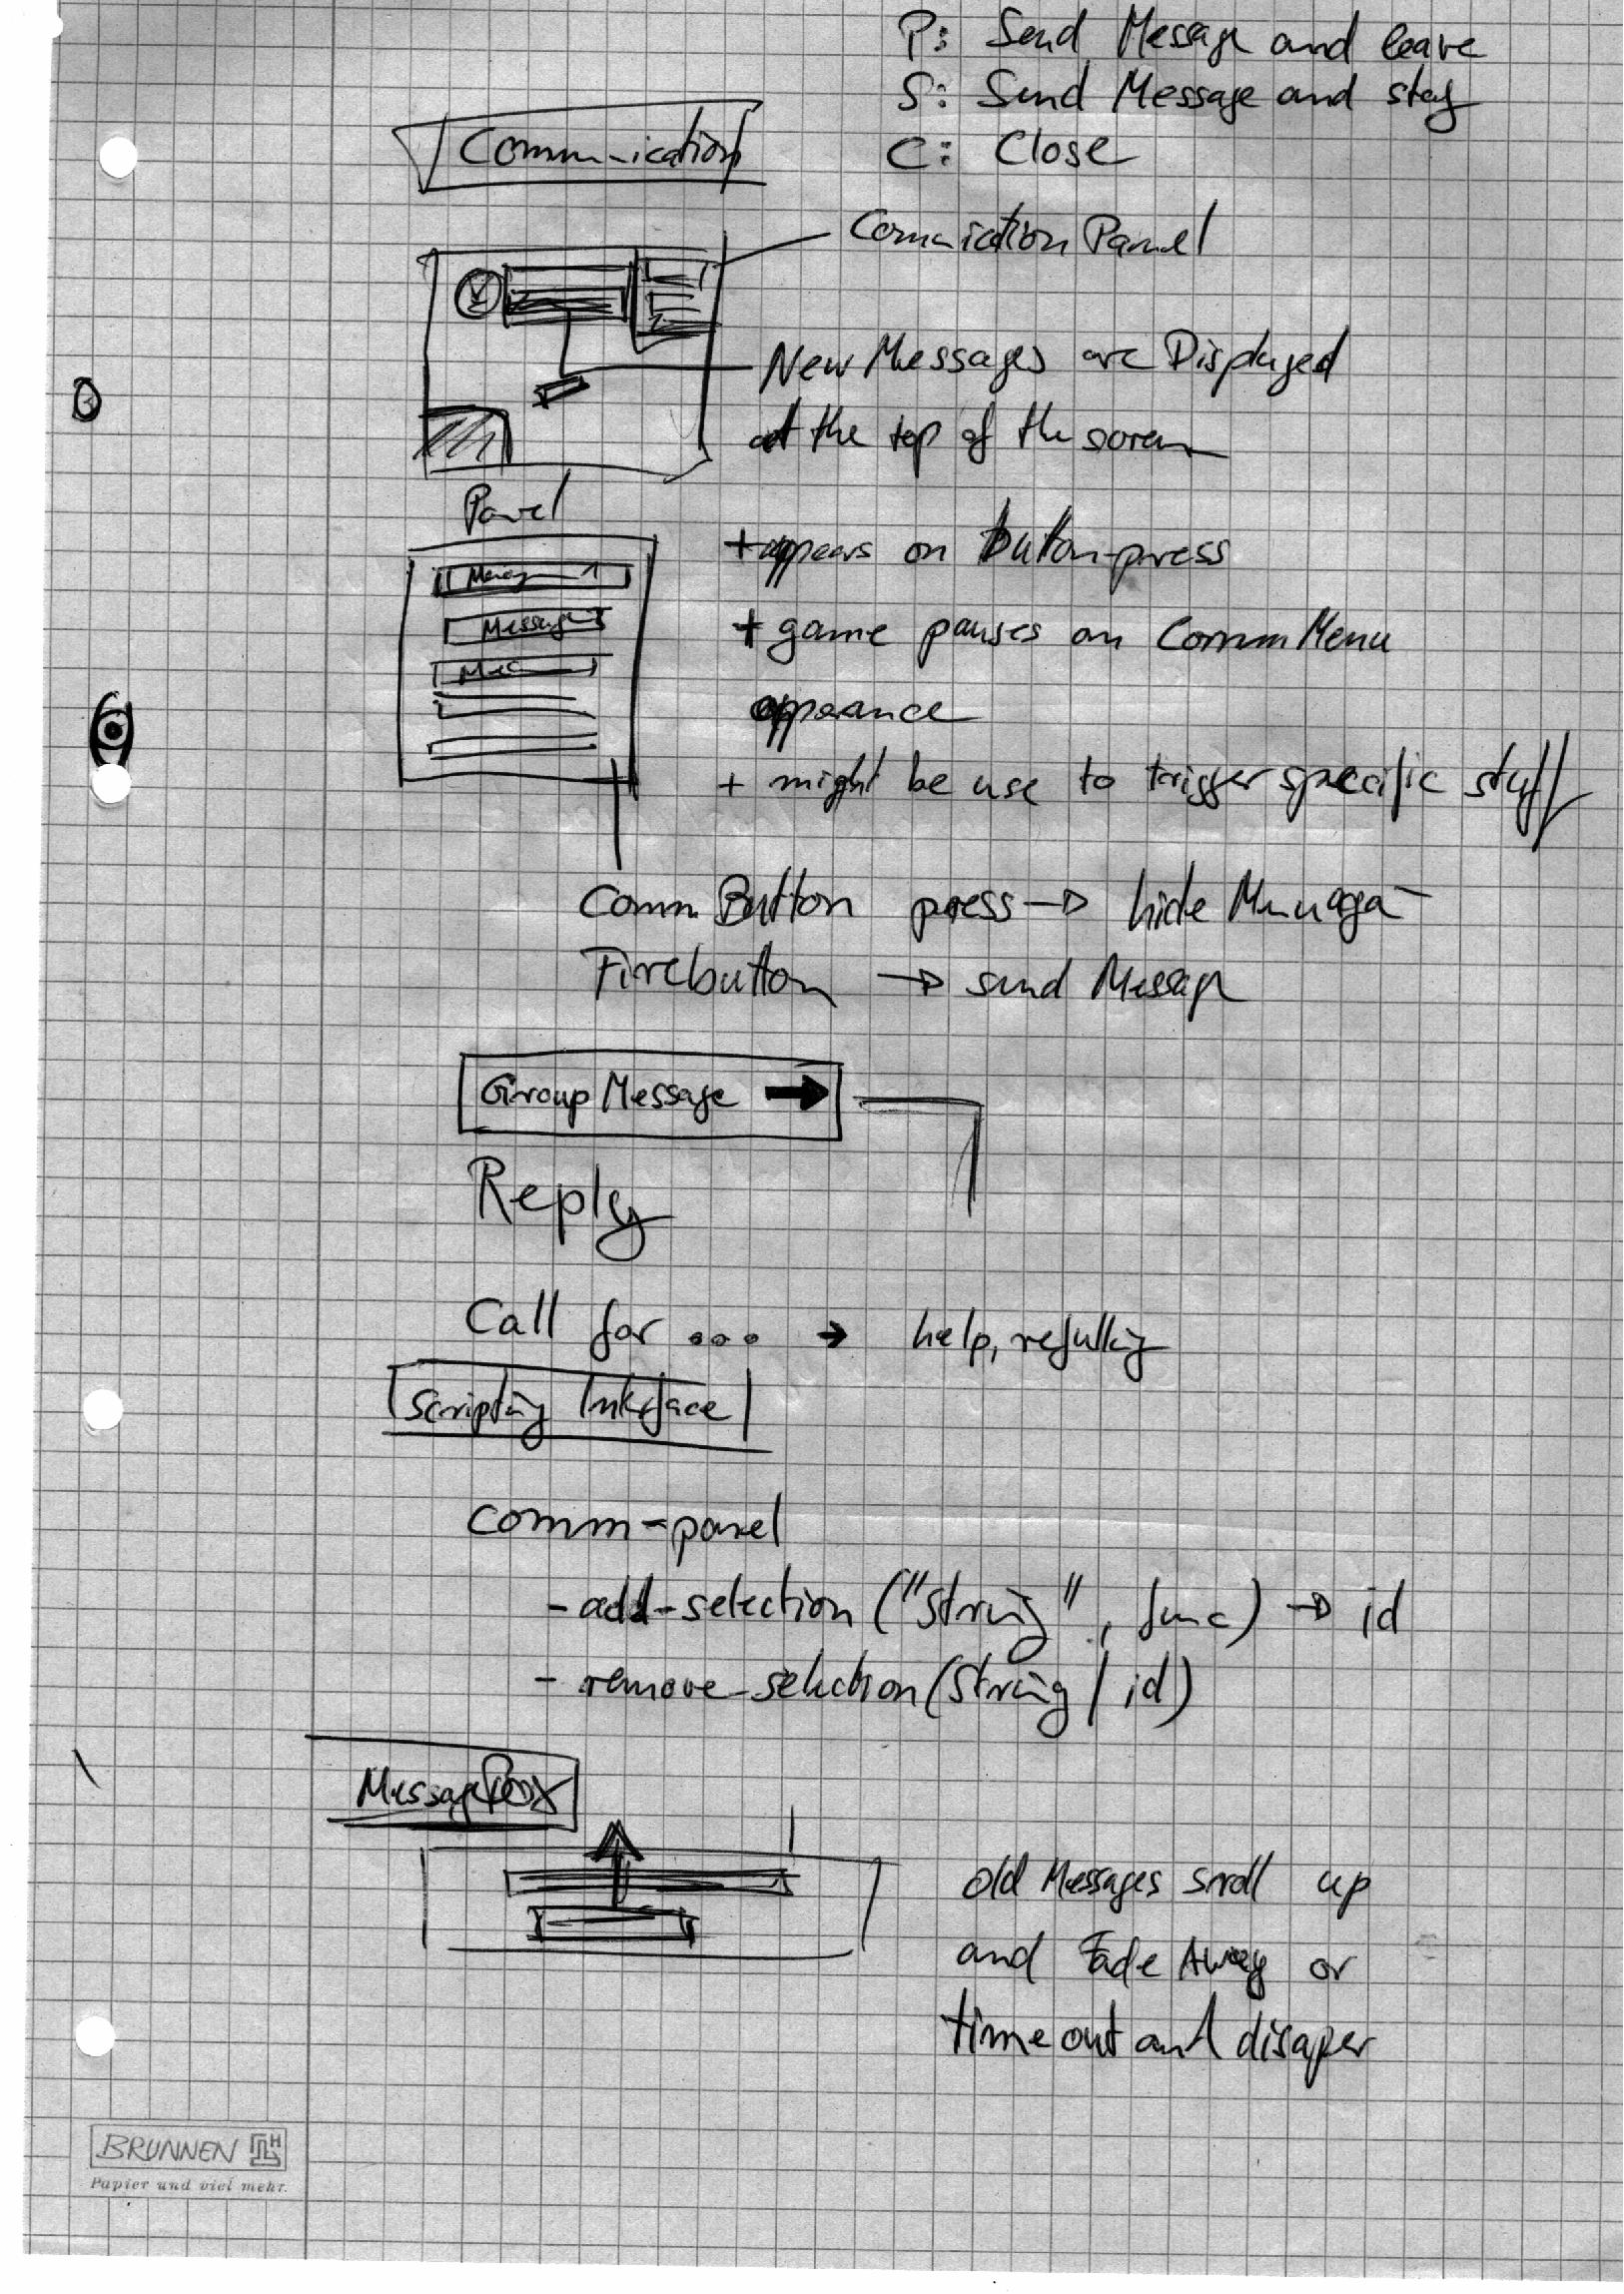 P: Send Message and leave
S: Send Message and stay
C: Close
Communication
Comunication Panel
New Messages are Displayed
at the top of the screen
Panel
Message
Message
+ appears on button-press
+ game pauses on CommMenu
appearance
+ might be use to trigger specific stuff
Comm Button press → hide
Firebutton → send Message
Group Message →
Reply
Call for ... → help, refulling
Scripting Interface
comm-panel
- add-selection ("String", func) → id
- remove-selection (String / id)
MessageBox
old Messages scroll up
and Fade Away or
time out and disaper
BRUNNEN
Papier und viel mehr.